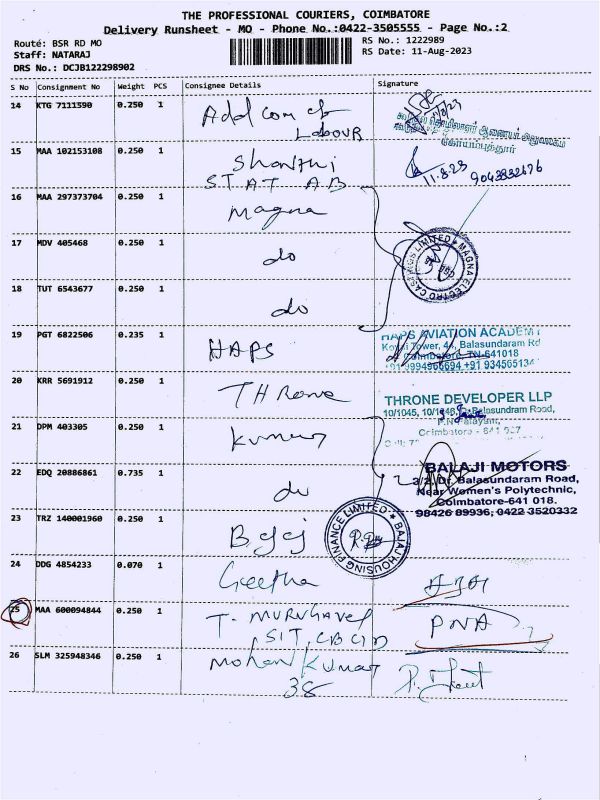 THE PROFESSIONAL COURIERS, COIMBATORE
Delivery Runsheet - MO - Phone No.:0422-3505555 - Page No.:2
Route: BSR RD MO
Staff: NATARAJ
DRS No.: DCJB122298902
RS No.: 1222989
RS Date: 11-Aug-2023
S No Consignment No Weight PCS Consignee Details Signature
14 KTG 7111590 0.250 1 Addl com of
Labour
11/8/23
தொழிலாளர் ஆணையர் அலுவலகம்
கோயம்புத்தூர்
15 MAA 102153108 0.250 1 Shanthi
STAT AB
11.8.23
16 MAA 297373704 0.250 1 Magna
17 MDV 405468 0.250 1 do
MAGNA ELECTRO CASTINGS LIMITED
18 TUT 6543677 0.250 1 do
19 PGT 6822506 0.235 1 HAPS
HAPS AVIATION ACADEMY
Tower, Balasundaram Rd
Coimbatore, TN-641018
20 KRR 5691912 0.250 1 Throne
THRONE DEVELOPER LLP
10/1045, Dr. Balasundram Road,
Coimbatore
21 DPM 403305 0.250 1 Kumar
22 EDQ 20886861 0.735 1 do
2
BALAJI MOTORS
3/2, Dr. Balasundaram Road,
Near Women's Polytechnic,
Coimbatore-641 018.
98426 89936, 0422 3520332
23 TRZ 140001960 0.250 1 Bajaj
BAJAJ HOUSING FINANCE LIMITED
24 DDG 4854233 0.070 1 Geetha
25 MAA 600094844 0.250 1 T. Murugavel
SIT, CBCID
PNA
26 SLM 325948346 0.250 1 Mohan Kumar
38